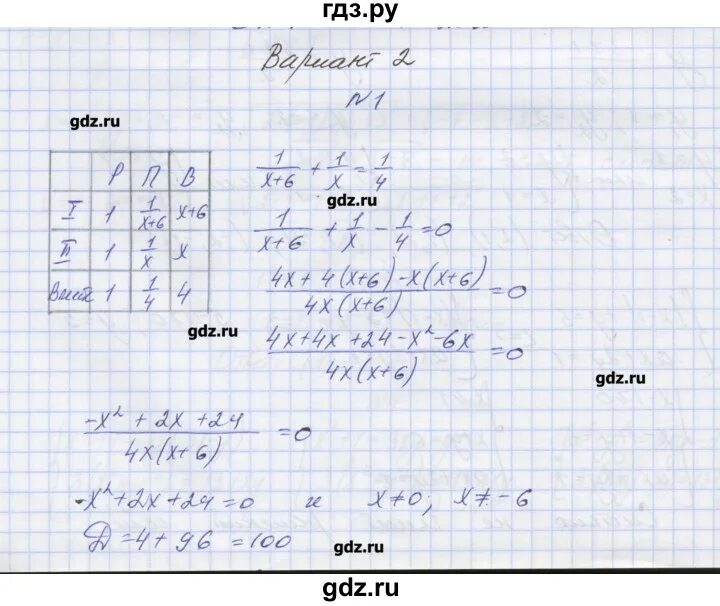 гдз.ру
Вариант 2
№1
gdz.ru
Р П В
I 1 1/(x+6) x+6
II 1 1/x x
Вместе 1 1/4 4
1/(x+6) + 1/x = 1/4
gdz.ru
1/(x+6) + 1/x - 1/4 = 0
(4x + 4(x+6) - x(x+6))/(4x(x+6)) = 0
gdz.ru
(4x + 4x + 24 - x² - 6x)/(4x(x+6)) = 0
gdz.ru
(-x² + 2x + 24)/(4x(x+6)) = 0
-x² + 2x + 24 = 0 и x ≠ 0; x ≠ -6
Д = 4 + 96 = 100
gdz.ru
gdz.ru